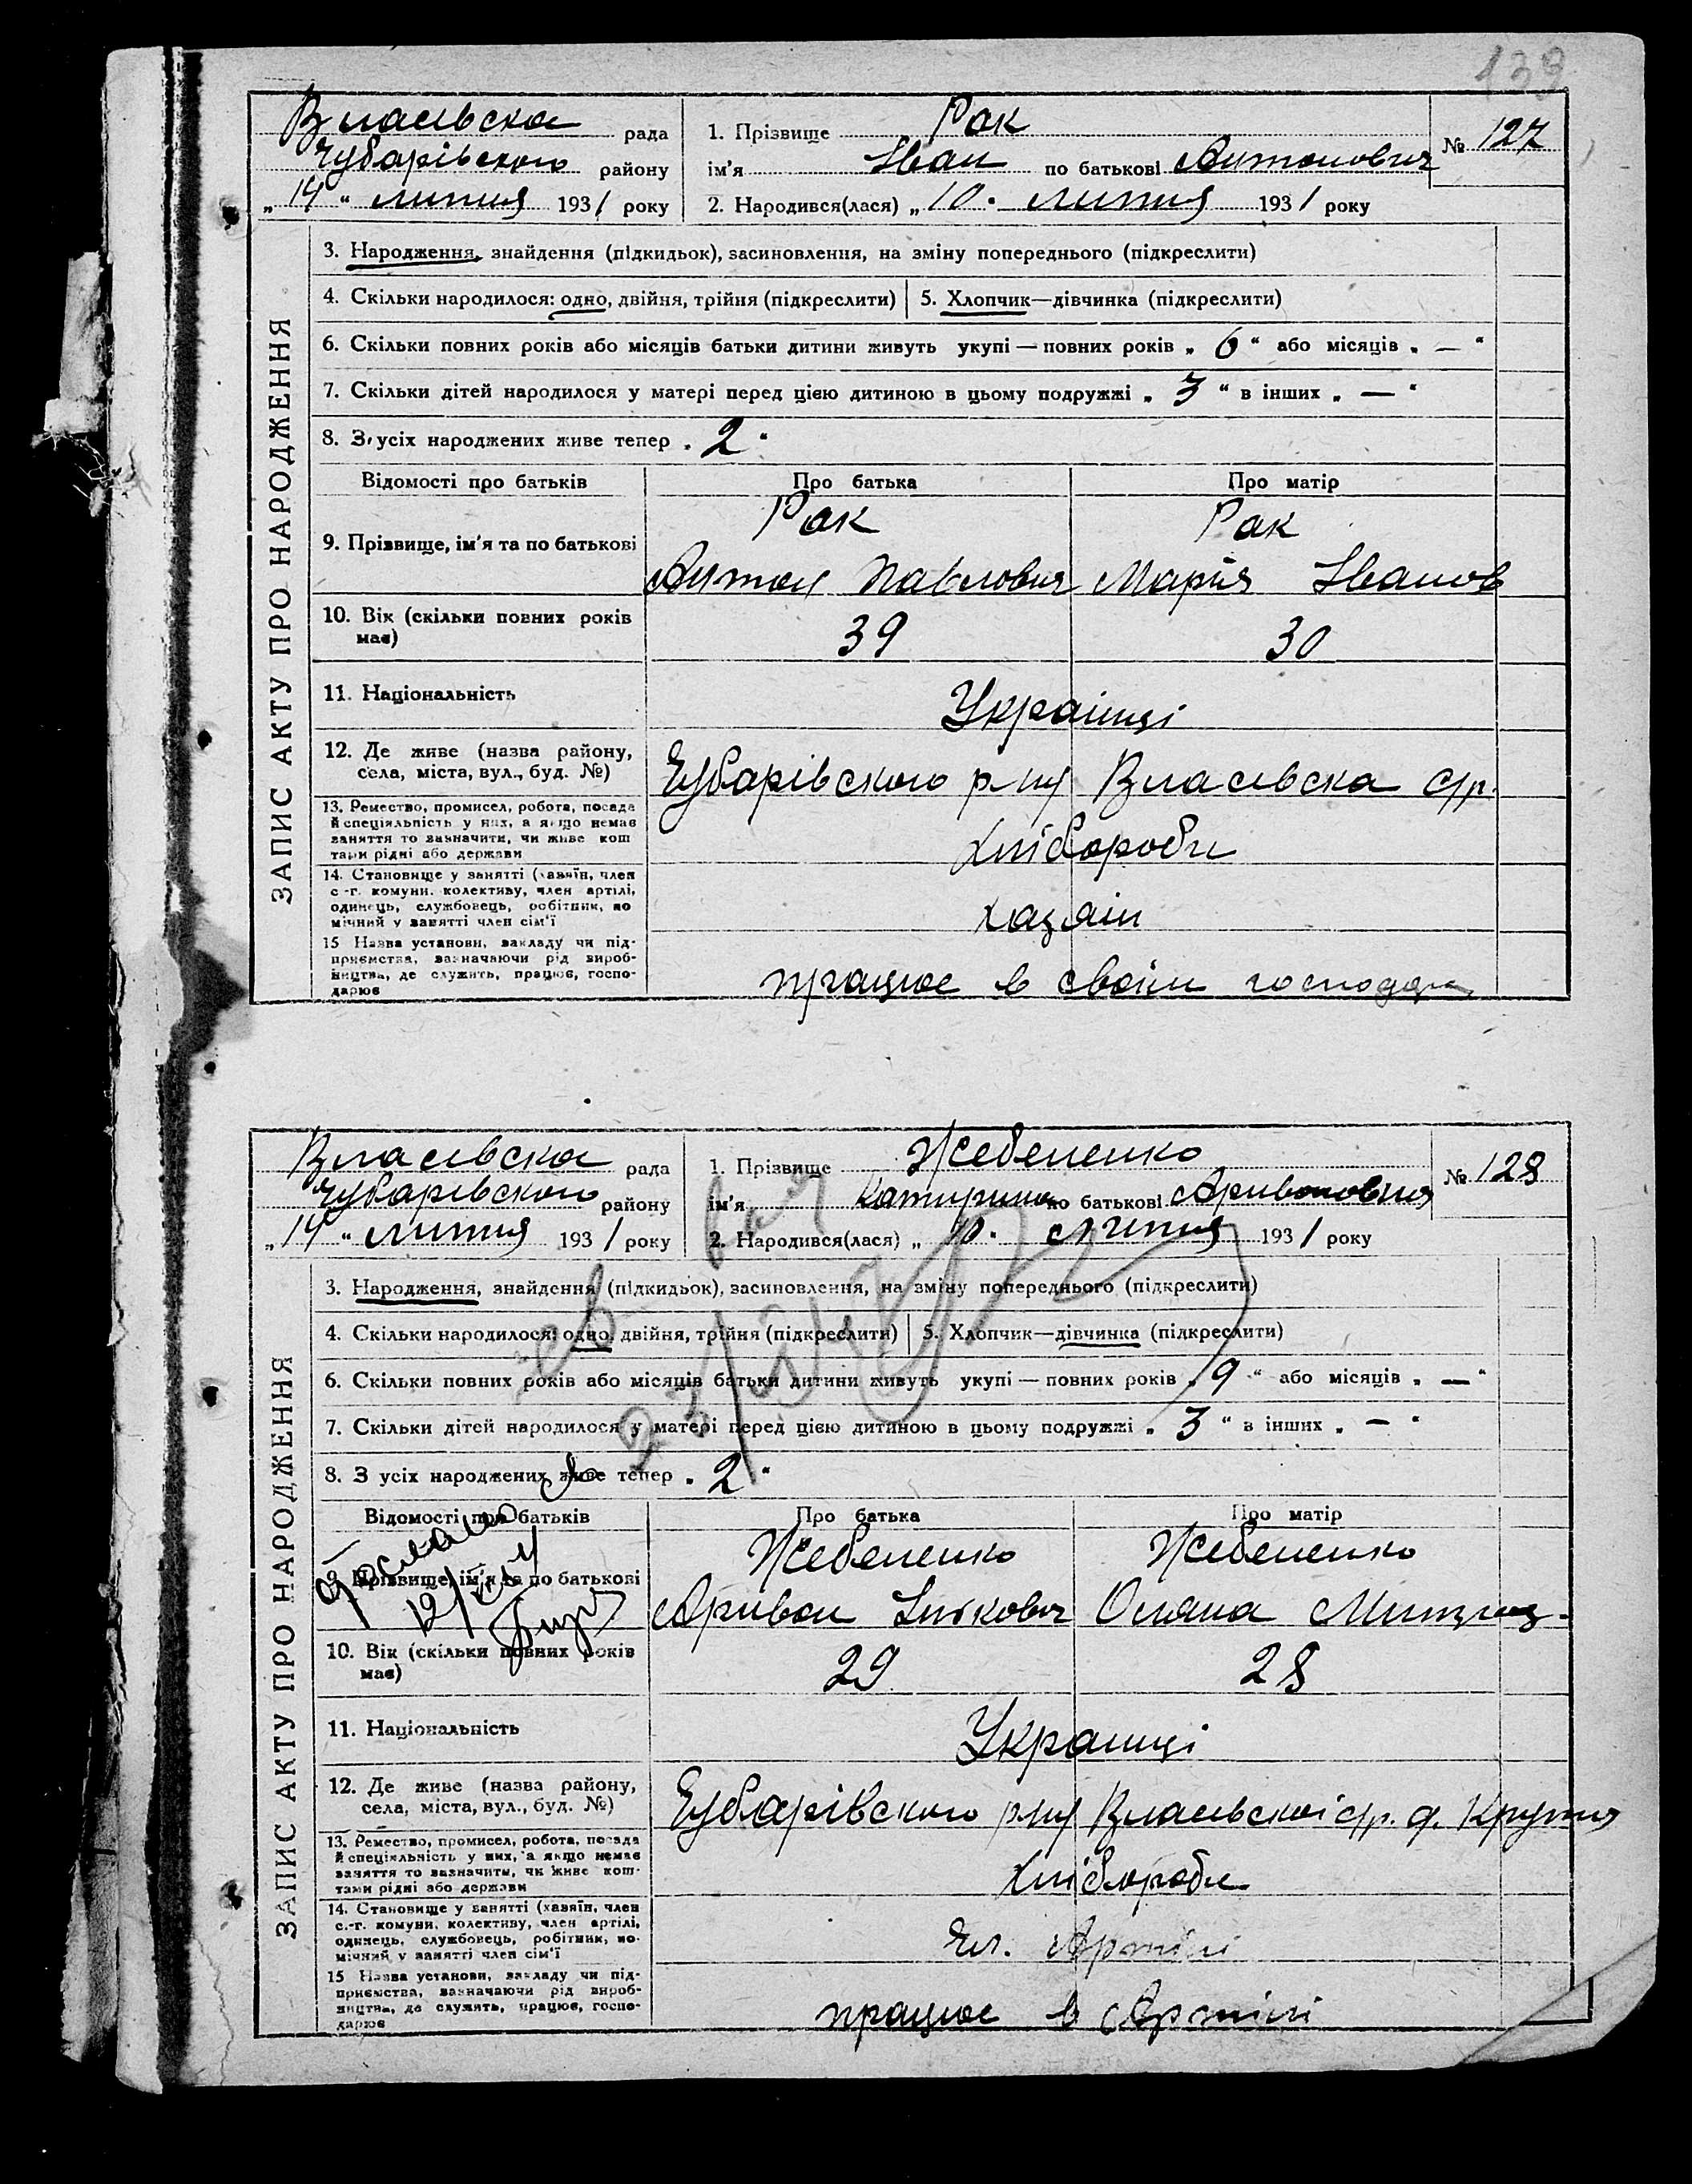 139
Власівська рада
Чубарівського району
„14“ липня 1931 року
1. Прізвище Рак
№ 127
ім'я Іван по батькові Антонович
2. Народився(лася) „10“ липня 1931 року
ЗАПИС АКТУ ПРО НАРОДЖЕННЯ
3. Народження, знайдення (підкидьок), засиновлення, на зміну попереднього (підкреслити)
4. Скільки народилося: одно, двійня, трійня (підкреслити) 5. Хлопчик—дівчинка (підкреслити)
6. Скільки повних років або місяців батьки дитини живуть укупі — повних років „ 6 “ або місяців „ — “
7. Скільки дітей народилося у матері перед цією дитиною в цьому подружжі „ 3 “ в інших „ — “
8. З усіх народжених живе тепер „ 2 “
Відомості про батьків Про батька Про матір
9. Прізвище, ім'я та по батькові
Рак Рак
Антон Павлович Марія Іванов
10. Вік (скільки повних років має) 39 30
11. Національність Українці
12. Де живе (назва району, села, міста, вул., буд. №) Чубарівського р-ну Власівська с/р.
13. Ремество, промисел, робота, посада й спеціяльність у них, а якщо немає заняття то зазначити, чи живе коштами рідні або держави
Хлібороби
14. Становище у занятті (хазяїн, член с.-г. комуни, колективу, член артілі, одинець, службовець, робітник, помічний у занятті член сім'ї
хазяїн
15 Назва установи, закладу чи підприємства, зазначаючи рід виробництва, де служить, працює, господарює
працює в своїм господар
Власівська рада
Чубарівського району
„14“ липня 1931 року
1. Прізвище Жебеленко
№ 128
ім'я Катирина по батькові Аривоновна
2. Народився(лася) „10“ липня 1931 року
ЗАПИС АКТУ ПРО НАРОДЖЕННЯ
3. Народження, знайдення (підкидьок), засиновлення, на зміну попереднього (підкреслити)
4. Скільки народилося: одно, двійня, трійня (підкреслити) 5. Хлопчик—дівчинка (підкреслити)
6. Скільки повних років або місяців батьки дитини живуть укупі — повних років „ 9 “ або місяців „ — “
7. Скільки дітей народилося у матері перед цією дитиною в цьому подружжі „ 3 “ в інших „ — “
8. З усіх народжених живе тепер „ 2 “
Відомості про батьків Про батька Про матір
9. Прізвище, ім'я та по батькові
Жебеленко Жебеленко
Аривон Ількович Оляна
10. Вік (скільки повних років має) 29 28
11. Національність Українці
12. Де живе (назва району, села, міста, вул., буд. №) Чубарівського р-ну Власівської с/р.
13. Ремество, промисел, робота, посада й спеціяльність у них, а якщо немає заняття то зазначити, чи живе коштами рідні або держави
Хлібороби
14. Становище у занятті (хазяїн, член с.-г. комуни, колективу, член артілі, одинець, службовець, робітник, помічний у занятті член сім'ї
Чл. Артілі
15 Назва установи, закладу чи підприємства, зазначаючи рід виробництва, де служить, працює, господарює
працює в Артілі